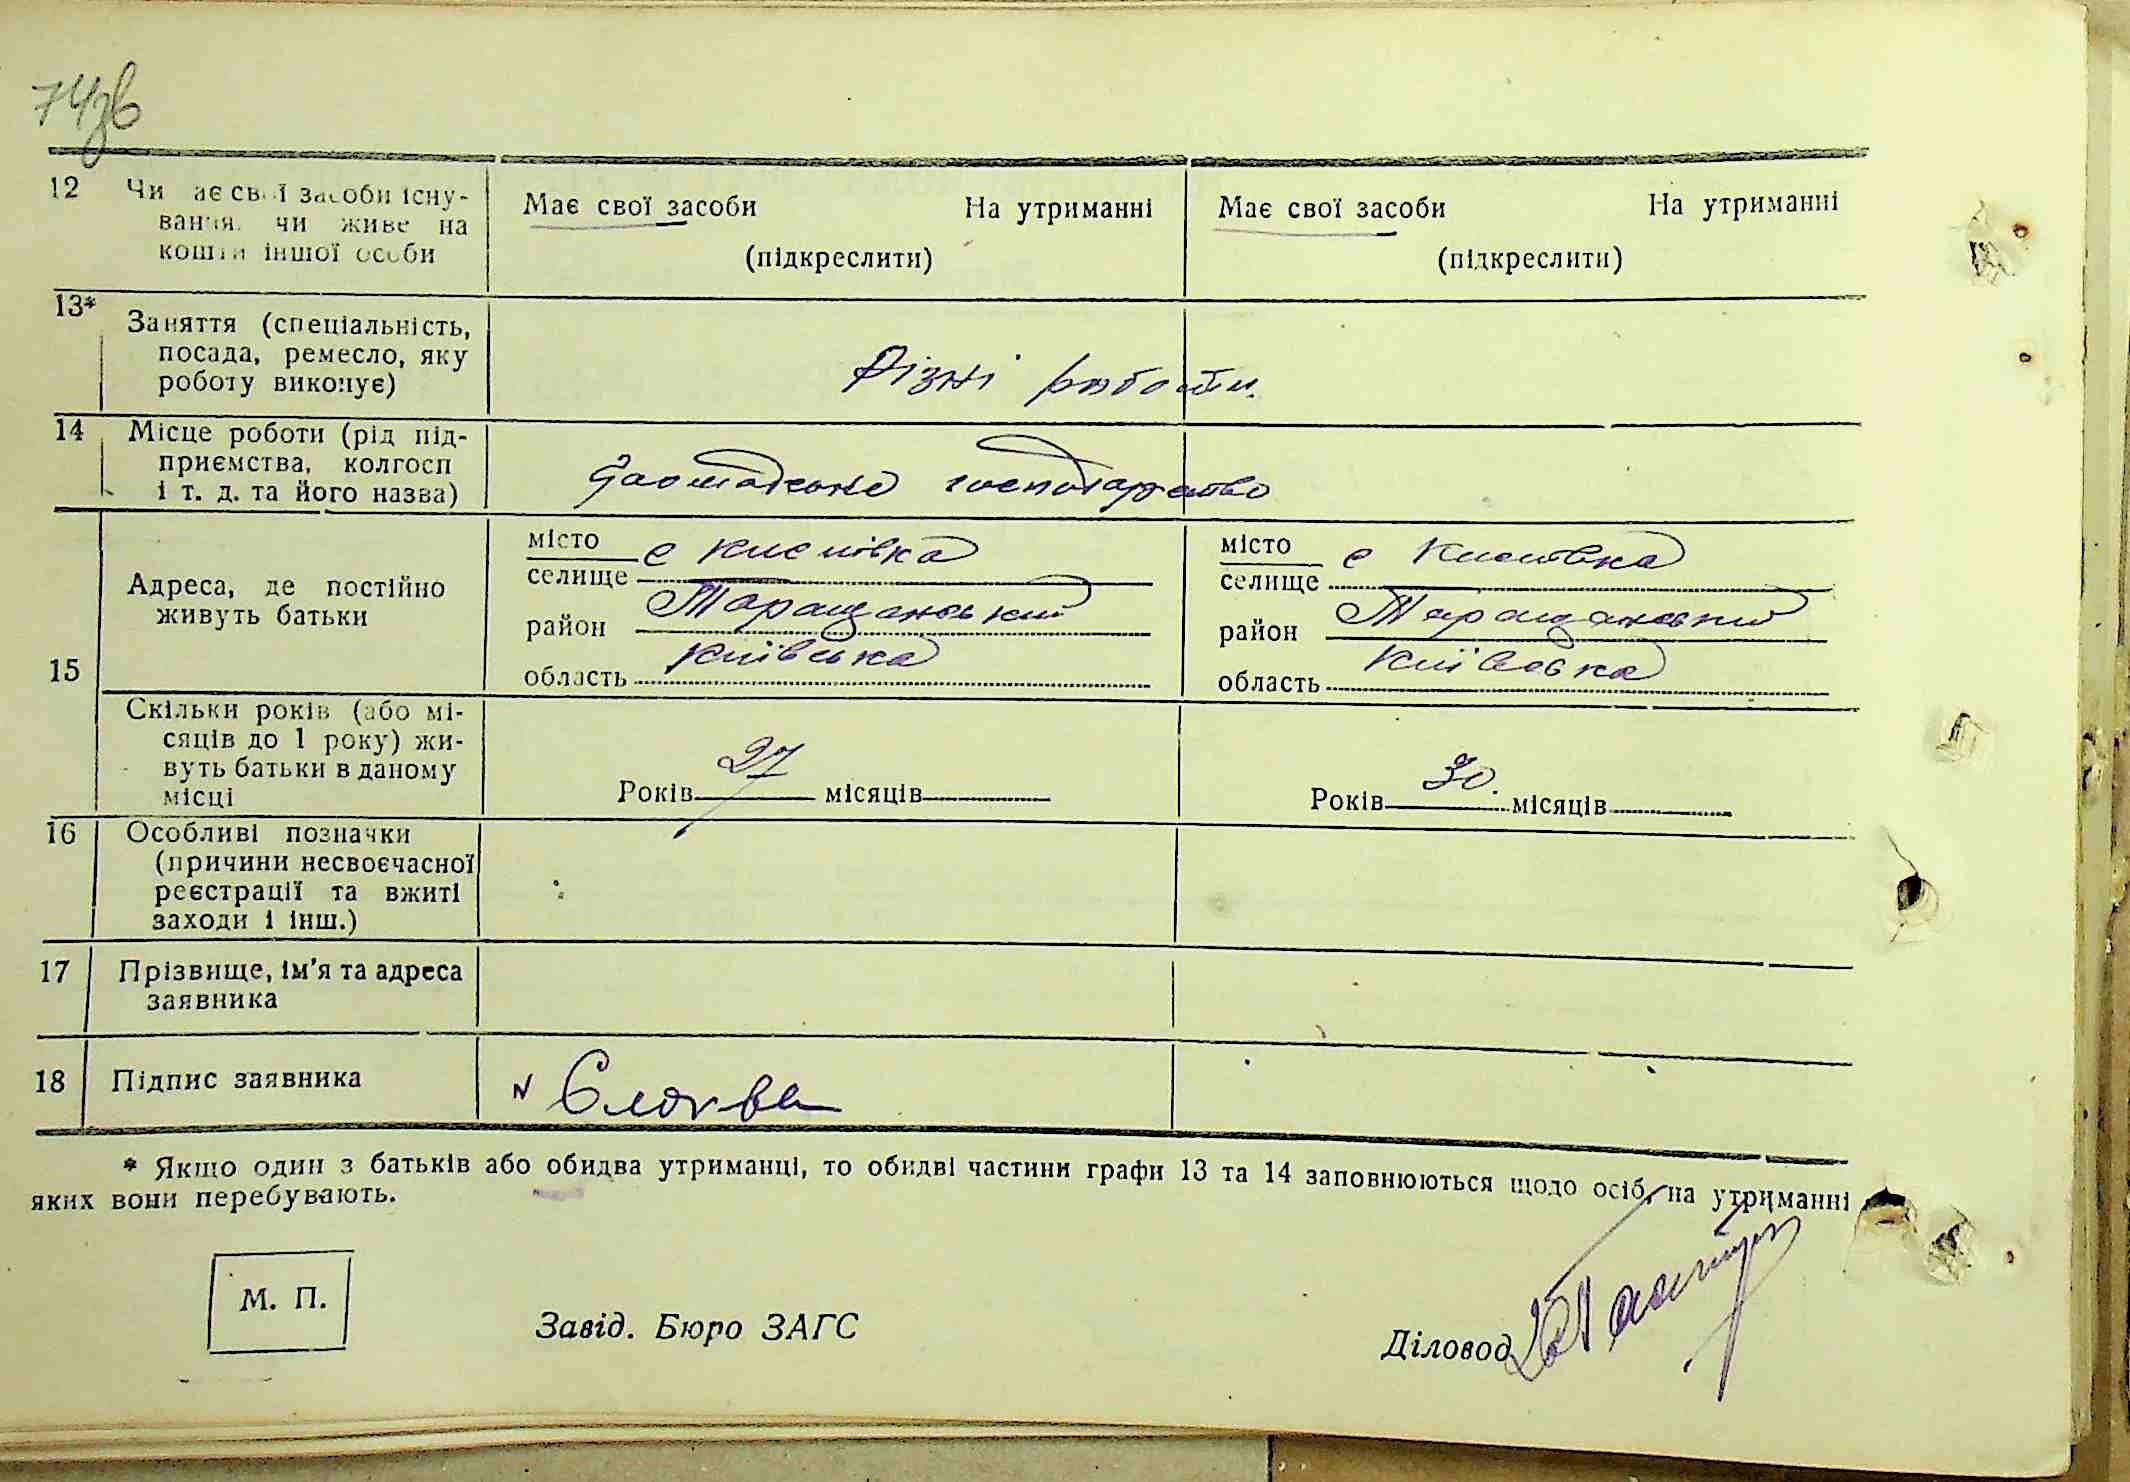 74зв
12 Чи має свої засоби існу-
вання, чи живе на
кошти іншої особи
Має свої засоби На утриманні
(підкреслити)
Має свої засоби На утриманні
(підкреслити)
13* Заняття (спеціальність,
посада, ремесло, яку
роботу виконує)
Різні работи.
14 Місце роботи (рід під-
приємства, колгосп
і т. д. та його назва)
Громадське господарство
15
Адреса, де постійно
живуть батьки
місто
селище с Кислівка
район Таращанський
область Київська
місто
селище с Кислівка
район Таращанський
область Київська
Скільки років (або мі-
сяців до 1 року) жи-
вуть батьки в даному
місці
Років 27 місяців
Років 30. місяців
16 Особливі позначки
(причини несвоєчасної
реєстрації та вжиті
заходи і інш.)
17 Прізвище, ім'я та адреса
заявника
18 Підпис заявника
* Якщо один з батьків або обидва утриманці, то обидві частини графи 13 та 14 заповнюються щодо осіб, на утриманні
яких вони перебувають.
М. П.
Завід. Бюро ЗАГС
Діловод